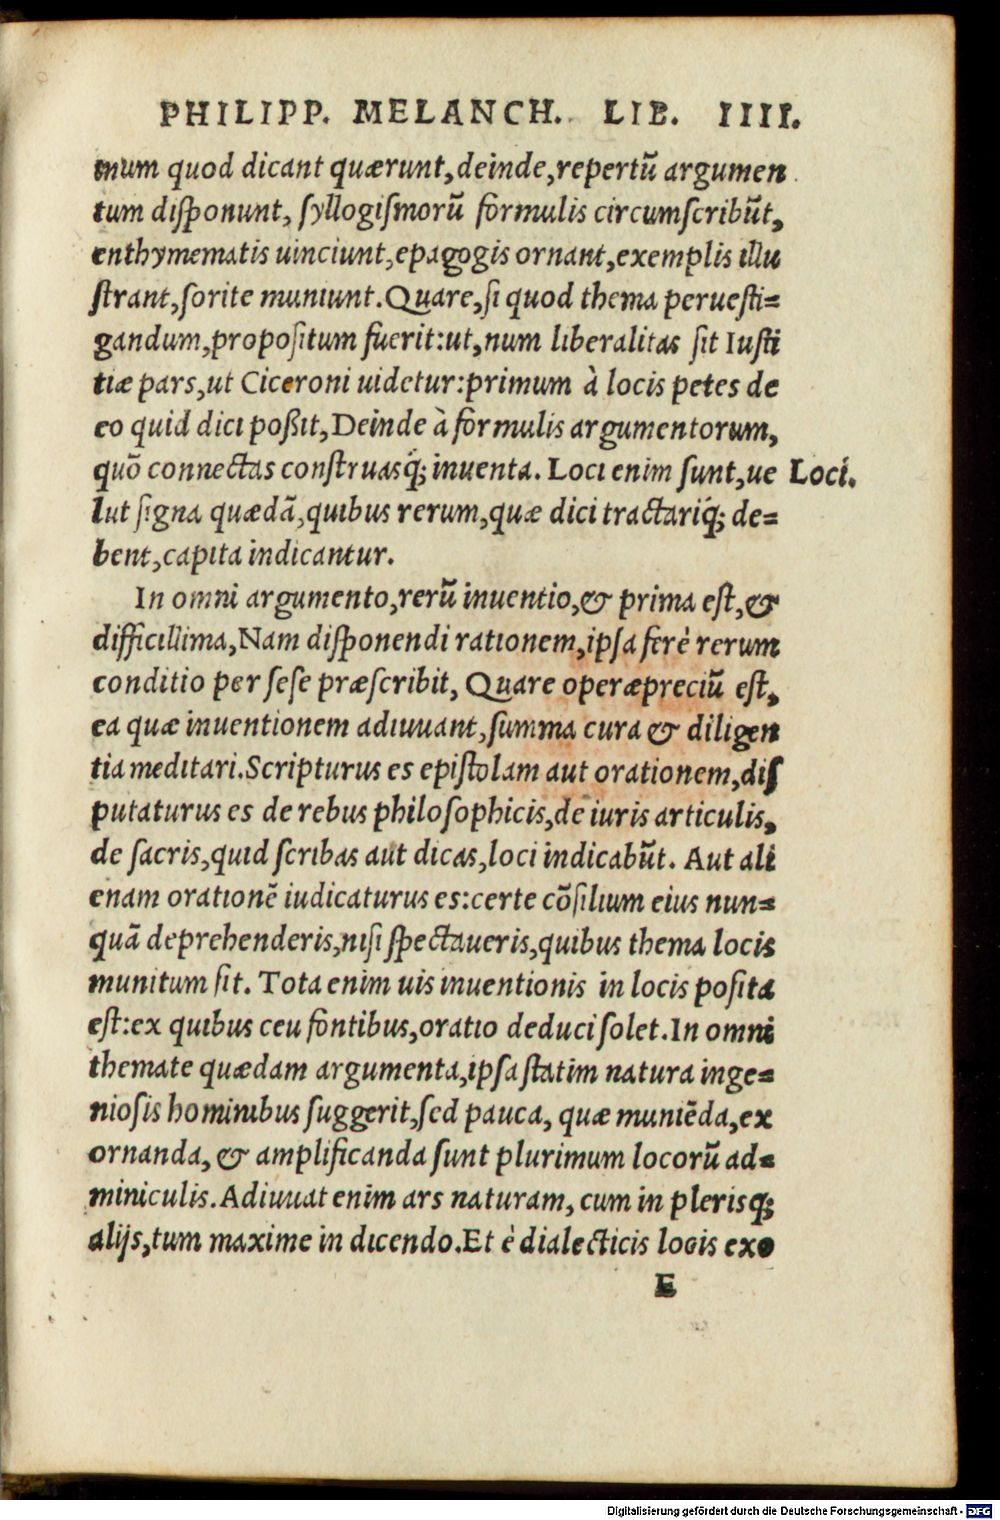 PHILIPP. MELANCH. LIB. IIII.
mum quod dicant quærunt, deinde, repertũ argumen
tum diſponunt, ſyllogiſmorũ formulis circumſcribũt,
enthymematis uinciunt, epagogis ornant, exemplis illu
ſtrant, ſorite muniunt. Quare, ſi quod thema perueſti=
gandum, propoſitum fuerit: ut, num liberalitas ſit Iuſti
tiæ pars, ut Ciceroni uidetur: primum à locis petes de
eo quid dici poßit, Deinde à formulis argumentorum,
quõ connectas conſtruasq́; inuenta. Loci enim ſunt, ue
Loci.
lut ſigna quædã, quibus rerum, quæ dici tractariq́; de=
bent, capita indicantur.
In omni argumento, rerũ inuentio, & prima eſt, &
difficillima, Nam diſponendi rationem, ipſa ferè rerum
conditio per ſeſe præſcribit, Quare operæpreciũ eſt,
ea quæ inuentionem adiuuant, ſumma cura & diligen
tia meditari. Scripturus es epiſtolam aut orationem, diſ
putaturus es de rebus philoſophicis, de iuris articulis,
de ſacris, quid ſcribas aut dicas, loci indicabũt. Aut ali
enam orationẽ iudicaturus es: certe cõſilium eius nun=
quã deprehenderis, niſi ſpectaueris, quibus thema locis
munitum ſit. Tota enim uis inuentionis in locis poſita
eſt: ex quibus ceu fontibus, oratio deduci ſolet. In omni
themate quædam argumenta, ipſa ſtatim natura inge=
nioſis hominibus ſuggerit, ſed pauca, quæ muniẽda, ex
ornanda, & amplificanda ſunt plurimum locorũ ad=
miniculis. Adiuuat enim ars naturam, cum in plerisq́;
alijs, tum maxime in dicendo. Et è dialecticis locis exo
E
Digitalisierung gefördert durch die Deutsche Forschungsgemeinschaft - DFG